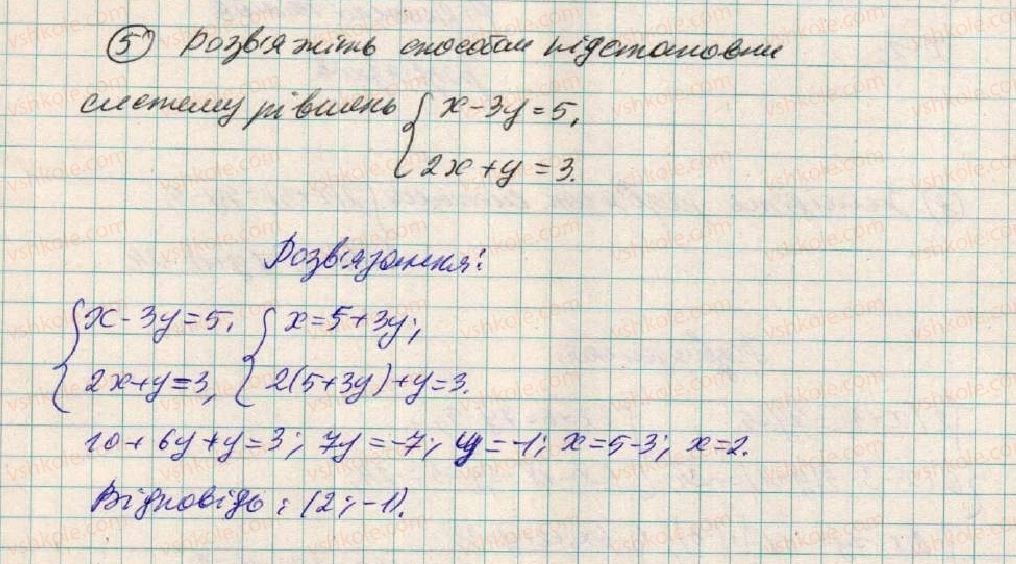 5) Розв'яжіть способом підстановки
систему рівнянь { x - 3y = 5,
2x + y = 3.
Розв'язання:
{ x - 3y = 5, { x = 5 + 3y;
2x + y = 3, 2(5 + 3y) + y = 3.
10 + 6y + y = 3; 7y = -7; y = -1; x = 5 - 3; x = 2.
Відповідь: (2; -1).
vshkole.com